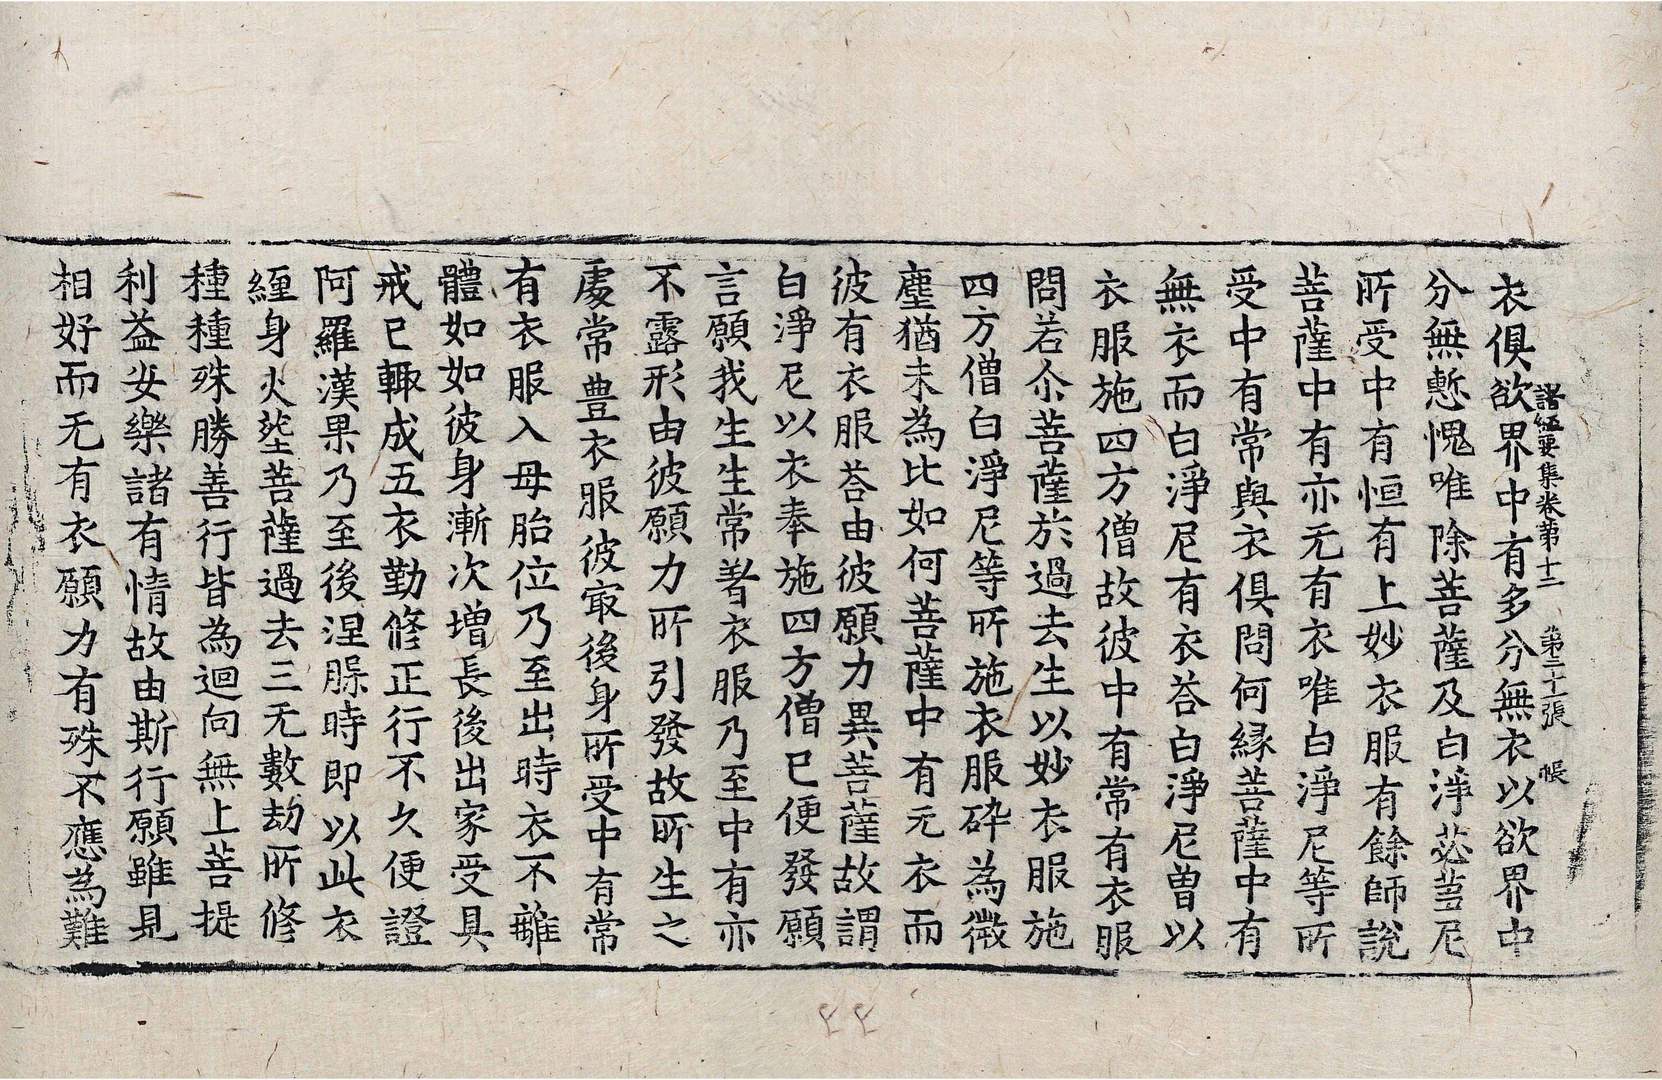 諸經要集卷苐十二 苐二十張 帳
衣俱欲界中有多分無衣以欲界中
分無慙愧唯除菩薩及白淨苾蒭尼
所受中有恒有上妙衣服有餘師說
菩薩中有亦无有衣唯白淨尼等所
受中有常與衣俱問何緣菩薩中有
無衣而白淨尼有衣荅白淨尼曾以
衣服施四方僧故彼中有常有衣服
問若尒菩薩於過去生以妙衣服施
四方僧白淨尼等所施衣服碎為微
塵猶未為比如何菩薩中有无衣而
彼有衣服荅由彼願力異菩薩故謂
白淨尼以衣奉施四方僧已便發願
言願我生生常著衣服乃至中有亦
不露形由彼願力所引發故所生之
處常豊衣服彼㝡後身所受中有常
有衣服入母胎位乃至出時衣不離
體如如彼身漸次增長後出家受具
戒已輙成五衣勤修正行不久便證
阿羅漢果乃至後涅脲時即以此衣
纏身火塟菩薩過去三无數劫所修
種種殊勝善行皆為迴向無上菩提
利益安樂諸有情故由斯行願雖見
相好而无有衣願力有殊不應為難